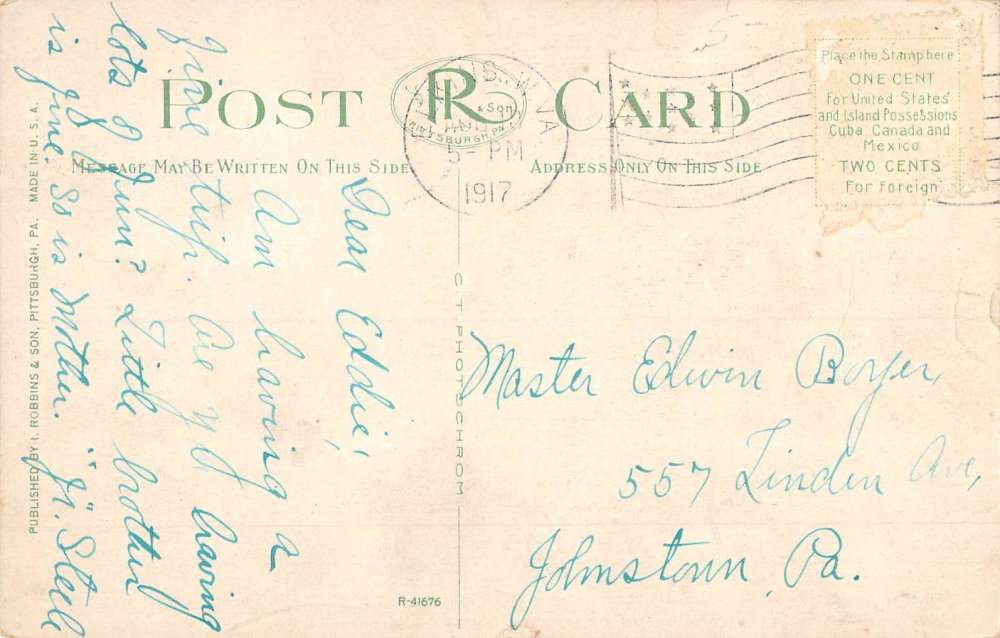 POST CARD
IR & Son
PITTSBURGH, PA.
US. W. VA
5- PM
1917
Place the Stamp here
ONE CENT
For United States
and Island Possessions
Cuba Canada and
Mexico
TWO CENTS
For Foreign
MESSAGE MAY BE WRITTEN ON THIS SIDE
ADDRESS ONLY ON THIS SIDE
Dear Eddie,
Am having a
fine trip. Are you having
lots of fun? Little brother
is fine. So is Mother. "Ji". Steele
Master Edwin Boyer,
557 Linden Ave,
Johnstown, Pa.
CT PHOTOCHROM
PUBLISHED BY I. ROBBINS & SON, PITTSBURGH, PA. MADE IN U. S. A.
R-41676